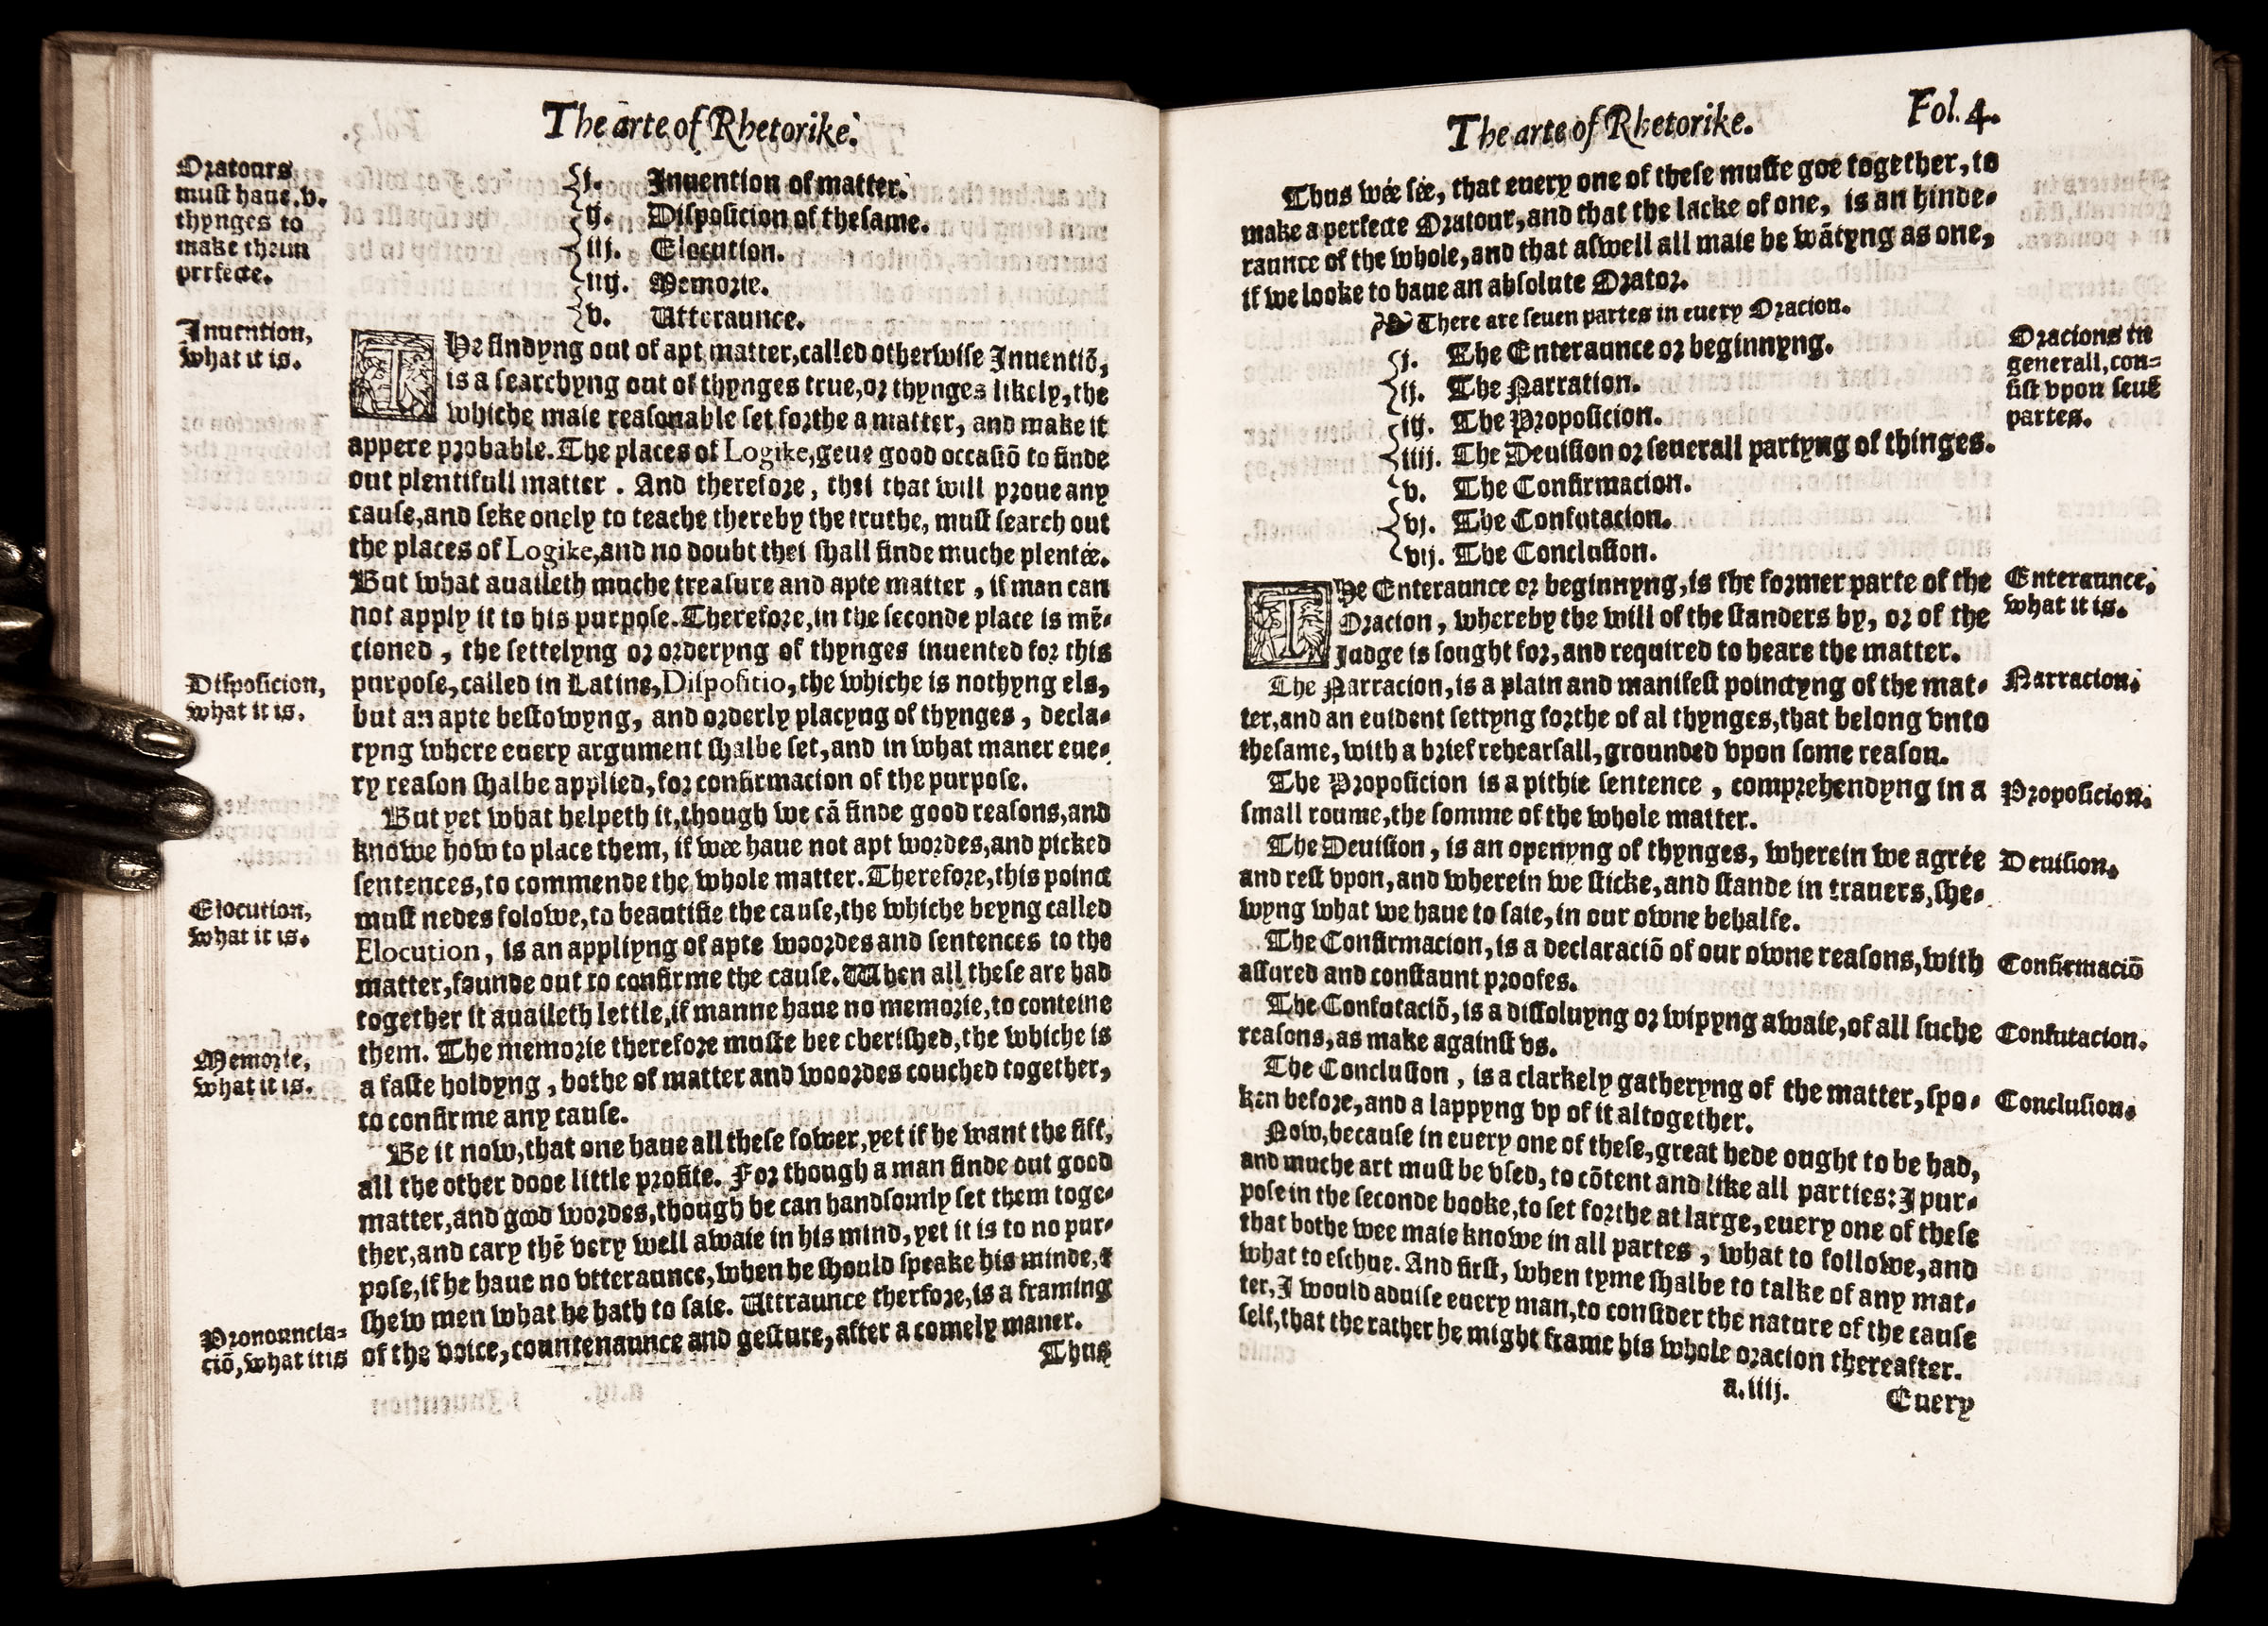 The arte of Rhetorike.
Oratours
must haue.v.
thynges to
make theim
perfecte.
j. Inuention of matter.
ij. Disposicion of thesame.
iij. Elocution.
iiij. Memorie.
v. Utteraunce.
Inuention,
what it is.
THe findyng out of apt matter, called otherwise Inuentiō,
is a searchyng out of thynges true, or thynges likely, the
whiche maie reasonable set forthe a matter, and make it
appere probable. The places of Logike, geue good occasiō to finde
out plentifull matter. And therefore, thei that will proue any
cause, and seke onely to teache thereby the truthe, must search out
the places of Logike, and no doubt thei shall finde muche plentée.
But what auaileth muche treasure and apte matter, if man can
not apply it to his purpose. Therefore, in the seconde place is mē-
cioned, the settelyng or orderyng of thynges inuented for this
Disposicion,
what it is.
purpose, called in Latine, Dispositio, the whiche is nothyng els,
but an apte bestowyng, and orderly placyng of thynges, decla-
ryng where euery argument shalbe set, and in what maner eue-
ry reason shalbe applied, for confirmacion of the purpose.
But yet what helpeth it, though we cā finde good reasons, and
knowe how to place them, if wée haue not apt wordes, and picked
sentences, to commende the whole matter. Therefore, this poinct
Elocution,
what it is.
must nedes folowe, to beautifie the cause, the whiche beyng called
Elocution, is an appliyng of apte woordes and sentences to the
matter, founde out to confirme the cause. When all these are had
together it auaileth lettle, if manne haue no memorie, to conteine
Memorie,
what it is.
them. The memorie therefore muste bee cherished, the whiche is
a faste holdyng, bothe of matter and woordes couched together,
to confirme any cause.
Be it now, that one haue all these fower, yet if he want the fift,
all the other dooe little profite. For though a man finde out good
matter, and good wordes, though he can handsomly set them toge-
ther, and cary thē very well awaie in his mind, yet it is to no pur-
pose, if he haue no vtteraunce, when he should speake his minde, &
shew men what he hath to saie. Uttraunce therfore, is a framing
Pronouncia-
ciō, what it is
of the voice, countenaunce and gesture, after a comely maner.
Thus
The arte of Rhetorike. Fol. 4.
Thus wée sée, that euery one of these muste goe together, to
make a perfecte Oratour, and that the lacke of one, is an hinde-
raunce of the whole, and that aswell all maie be wātyng as one,
if we looke to haue an absolute Orator.
There are seuen partes in euery Oracion.
Oracions in
generall, con-
sist vpon seuē
partes.
j. The Enteraunce or beginnyng.
ij. The Narration.
iij. The Proposicion.
iiij. The Deuision or seuerall partyng of thinges.
v. The Confirmacion.
vj. The Confutacion.
vij. The Conclusion.
Enteraunce,
what it is.
THe Enteraunce or beginnyng, is the former parte of the
Oracion, whereby the will of the standers by, or of the
Judge is sought for, and required to heare the matter.
Narracion.
The Narracion, is a plain and manifest poinctyng of the mat-
ter, and an euident settyng forthe of al thynges, that belong vnto
thesame, with a brief rehearsall, grounded vpon some reason.
Proposicion.
The Proposicion is a pithie sentence, comprehendyng in a
small roume, the somme of the whole matter.
Deuision.
The Deuision, is an openyng of thynges, wherein we agrée
and rest vpon, and wherein we sticke, and stande in trauers, she-
wyng what we haue to saie, in our owne behalfe.
Confirmaciō
The Confirmacion, is a declaraciō of our owne reasons, with
assured and constaunt proofes.
Confutacion.
The Confutaciō, is a dissoluyng or wipyng awaie, of all suche
reasons, as make against vs.
Conclusion.
The Conclusion, is a clarkely gatheryng of the matter, spo-
ken before, and a lappyng vp of it altogether.
Now, because in euery one of these, great hede ought to be had,
and muche art must be vsed, to cōtent and like all parties: I pur-
pose in the seconde booke, to set forthe at large, euery one of these
that bothe wee maie knowe in all partes, what to followe, and
what to eschue. And first, when tyme shalbe to talke of any mat-
ter, I would aduise euery man, to consider the nature of the cause
self, that the rather he might frame his whole oracion thereafter.
a.iiij. Euery